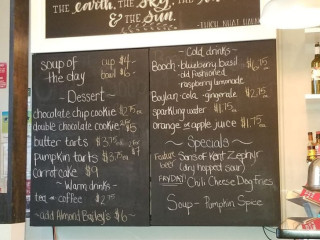 THE earth, THE SKY, THE
& THE SUN.
- THICH NHAT HANH
soup of cup $4
the day bowl $6
~ Dessert ~
chocolate chip cookie $2.75
double chocolate cookie
butter tarts $3.75
pumpkin tarts $3.75
carrot cake $9
~ Warm drinks ~
tea or coffee $2.75
~ add Almond Bailey's $6 ~
~ Cold drinks ~
Booch - blueberry basil $6.75
- old fashioned
- raspberry lemonade
Boylan - cola - gingerale $2.75
sparkling water $1.75
orange or apple juice $1.75
~ Specials ~
Feature beer Sons of Kent Zephyr
(dry hopped sour)
FRYDAY! Chili Cheese Dog Fries
Soup - Pumpkin Spice